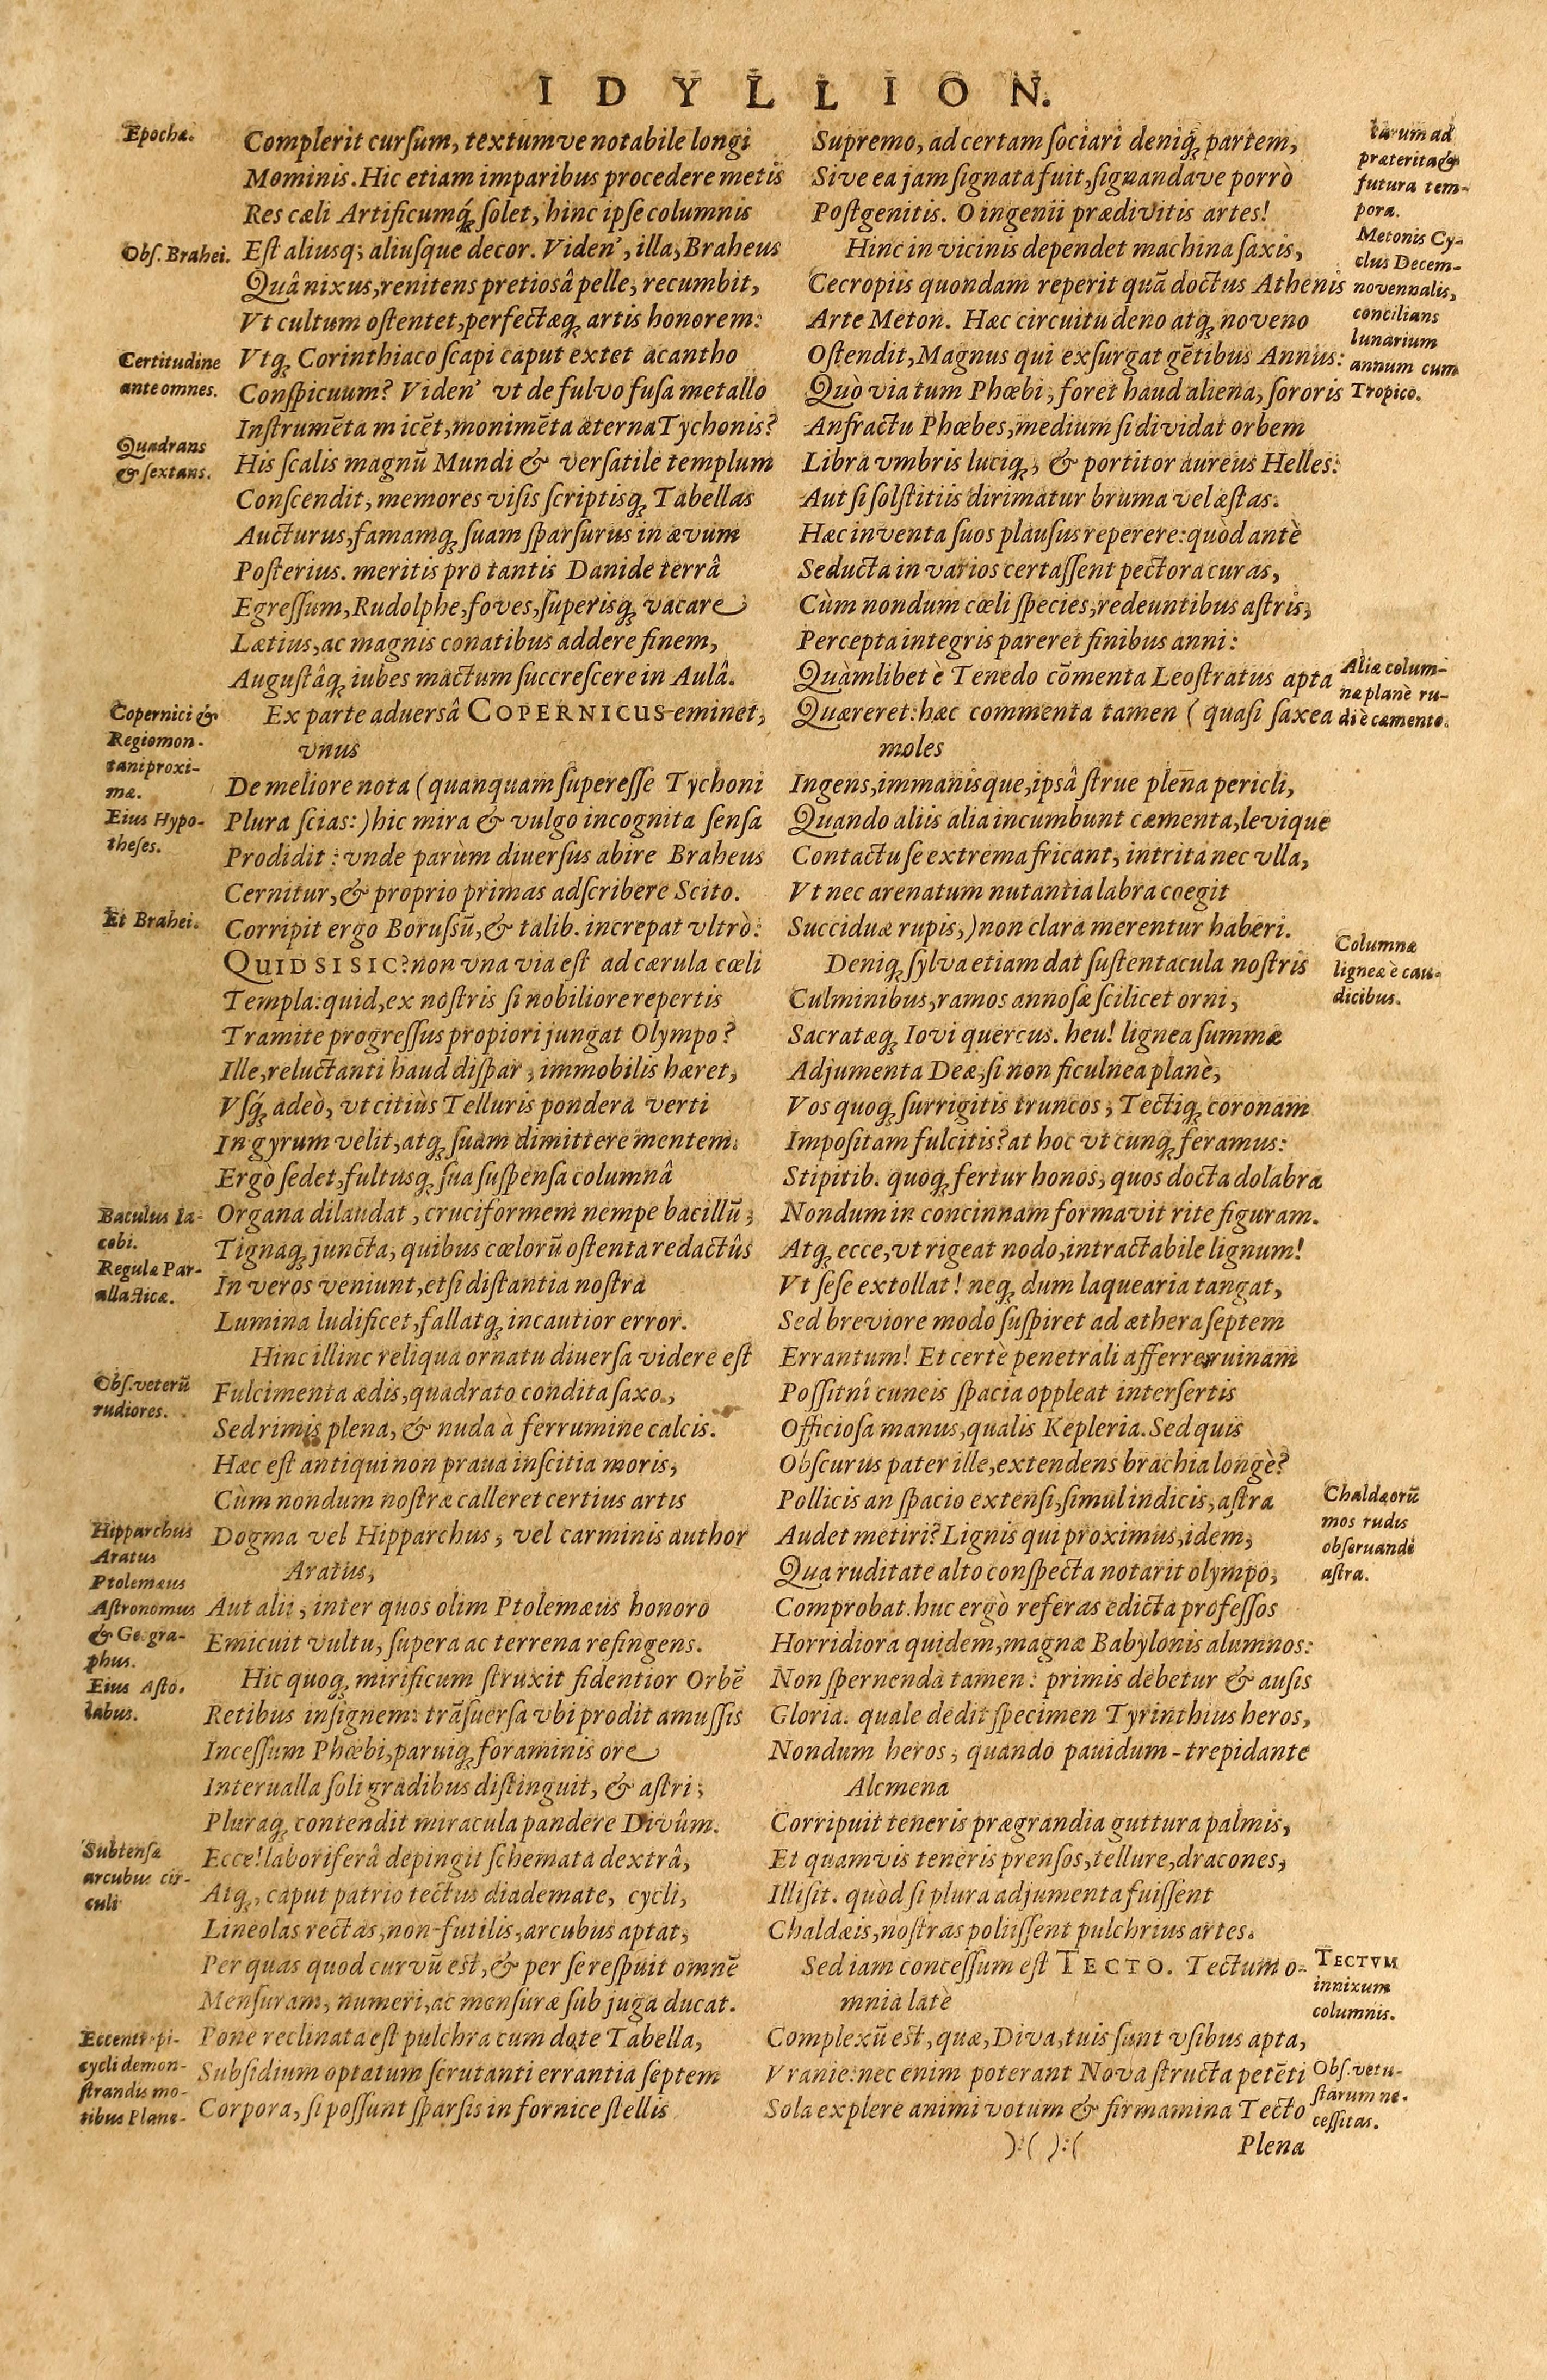 IDYLLION.
Epochæ.
Complerit cursum, textumve notabile longi
Mominis. Hic etiam imparibus procedere metis
Res cæli Artificumq́; solet, hinc ipse columnis
Obs. Brahei.
Est aliusq; aliusque decor. Viden', illa, Braheus
Quâ nixus, renitens pretiosâ pelle, recumbit,
Vt cultum ostentet, perfectæq; artis honorem:
Certitudine
ante omnes.
Vtq; Corinthiaco scapi caput extet acantho
Conspicuum? Viden' vt de fulvo fusa metallo
Instrumēta micēt, monimēta æterna Tychonis?
Quadrans
& sextans.
His scalis magnū Mundi & versatile templum
Conscendit, memores visis scriptisq; Tabellas
Aucturus, famamq; suam sparsurus in ævum
Posterius. meritis pro tantis Danide terrâ
Egressum, Rudolphe, foves, superisq; vacare
Lætius, ac magnis conatibus addere finem,
Augustâq; iubes mactum succrescere in Aulâ.
Copernici &
Regiomon-
tani proxi-
mæ.
Ex parte aduersâ COPERNICUS eminet,
vnus
De meliore nota (quanquam superesse Tychoni
Eius Hypo-
theses.
Plura scias:) hic mira & vulgo incognita sensa
Prodidit: vnde parùm diuersus abire Braheus
Cernitur, & proprio primas adscribere Scito.
Et Brahei.
Corripit ergo Borussū, & talib. increpat vltrò:
QUID SI SIC? non vna via est ad cærula cœli
Templa: quid, ex nostris si nobiliore repertis
Tramite progressus propiori jungat Olympo?
Ille, reluctanti haud dispar, immobilis hæret,
Vsq́; adeò, vt citiùs Telluris pondera verti
In gyrum velit, atq; suam dimittere mentem.
Ergò sedet, fultusq; sua suspensa columnâ
Baculus Ia-
cobi.
Regulæ Par-
allacticæ.
Organa dilaudat, cruciformem nempe bacillū,
Tignaq; juncta, quibus cœlorū ostenta redactûs
In veros veniunt, etsi distantia nostra
Lumina ludificet, fallatq; incautior error.
Hinc illinc reliqua ornatu diuersa videre est
Obs. veterū
rudiores.
Fulcimenta ædis, quadrato condita saxo,
Sed rimis plena, & nuda à ferrumine calcis.
Hæc est antiqui non praua inscitia moris,
Cùm nondum nostræ calleret certius artis
Hipparchus
Aratus
Ptolemæus
Astronomus
& Geogra-
phus.
Dogma vel Hipparchus, vel carminis author
Aratus,
Aut alii, inter quos olim Ptolemæus honoro
Emicuit vultu, supera ac terrena refingens.
Eius Asto.
labus.
Hic quoq; mirificum struxit fidentior Orbē
Retibus insignem: trāsuersa vbi prodit amussis
Incessum Phœbi, paruiq; foraminis ore
Interualla soli gradibus distinguit, & astri;
Pluraq; contendit miracula pandere Divûm.
Subtensæ
arcubus cir-
culi
Ecce! laboriferâ depingit schemata dextrâ,
Atq;, caput patrio tectus diademate, cycli,
Lineolas rectas, non-futilis, arcubus aptat,
Per quas quod curvū est, & per se respuit omnē
Mensuram, numeri, ac mensuræ sub juga ducat.
Eccentrepi-
cycli demon-
strandis mo-
tibus Plane-
Pone reclinata est pulchra cum dote Tabella,
Subsidium optatum scrutanti errantia septem
Corpora, si possunt sparsis in fornice stellis
tarum ad
præterita &
futura tem-
pora.
Supremo, ad certam sociari deniq; partem,
Sive ea jam signata fuit, signandave porrò
Postgenitis. O ingenii prædivitis artes!
Metonis Cy-
clus Decem-
novennalis,
concilians
lunarium
annum cum
Tropico.
Hinc in vicinis dependet machina saxis,
Cecropiis quondam reperit quā doctus Athenis
Arte Meton. Hæc circuitu deno atq; noveno
Ostendit, Magnus qui exsurgat gētibus Annus:
Quò via tum Phœbi, foret haud aliena, sororis
Anfractu Phœbes, medium si dividat orbem
Libra vmbris luciq;, & portitor aureus Helles:
Aut si solstitiis dirimatur bruma vel æstas.
Hæc inventa suos plausus reperere: quòd antè
Seducta in varios certassent pectora curas,
Cùm nondum cœli species, redeuntibus astris,
Percepta integris pareret finibus anni:
Aliæ colum-
næ planè ru-
di è cæmento.
Quàmlibet è Tenedo cōmenta Leostratus apta
Quæreret: hæc commenta tamen (quasi saxea
moles
Ingens, immanisque, ipsâ strue plena pericli,
Quando aliis alia incumbunt cæmenta, levique
Contactu se extrema fricant, intrita nec vlla,
Vt nec arenatum nutantia labra coegit
Succiduæ rupis,) non clara merentur haberi.
Columnæ
ligneæ è cau-
dicibus.
Deniq; sylva etiam dat sustentacula nostris
Culminibus, ramos annosæ scilicet orni,
Sacratæq; Iovi quercus. heu! lignea summæ
Adjumenta Deæ, si non ficulnea planè,
Vos quoq; surrigitis truncos, Tectiq; coronam
Impositam fulcitis? at hoc vt cunq; feramus:
Stipitib. quoq; fertur honos, quos docta dolabra
Nondum in concinnam formavit rite figuram.
Atq; ecce, vt rigeat nodo, intractabile lignum!
Vt sese extollat! neq; dum laquearia tangat,
Sed breviore modo suspiret ad æthera septem
Errantum! Et certè penetrali afferre ruinam
Possitnî cuneis spacia oppleat intersertis
Officiosa manus, qualis Kepleria. Sed quis
Obscurus pater ille, extendens brachia longè?
Chaldæorū
mos rudis
obseruandè
astra.
Pollicis an spacio extensi, simul indicis, astra
Audet metiri? Lignis qui proximus, idem,
Qua ruditate alto conspecta notarit olympo,
Comprobat. huc ergò referas edicta professos
Horridiora quidem, magnæ Babylonis alumnos:
Non spernenda tamen: primis debetur & ausis
Gloria. quale dedit specimen Tyrinthius heros,
Nondum heros, quando pauidum-trepidante
Alcmena
Corripuit teneris prægrandia guttura palmis,
Et quamvis teneris prensos, tellure, dracones,
Illisit. quòd si plura adjumenta fuissent
Chaldæis, nostras poliissent pulchrius artes.
TECTVM
innixum
columnis.
Sed iam concessum est TECTO. Tectum o-
mnia latè
Complexū est, quæ, Diva, tuis sunt vsibus apta,
Obs. vetu-
starum ne-
cessitas.
Vranie: nec enim poterant Nova structa petēti
Sola explere animi votum & firmamina Tecto
):( ):(
Plena